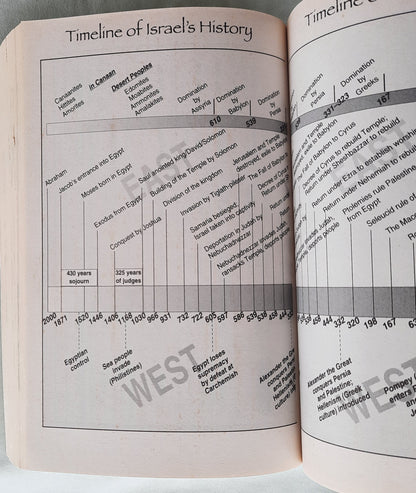 Timeline of Israel's History
Timeline
Canaanites
Hittites
Amorites
in Canaan
Desert Peoples
Edomites
Moabites
Ammonites
Amaliakites
Domination
by
Assyria
610
Domination
by
Babylon
539
Domination
by
Persia
Domination
by
Persia
331-323
Domination
by
Greeks
167
EAST
Abraham
Jacob's entrance into Egypt
Moses born in Egypt
Exodus from Egypt
Conquest by Joshua
Saul anointed king/David/Solomon
Building of the Temple by Solomon
Division of the kingdom
Invasion by Tiglath-pileser
Samaria besieged,
Israel taken into captivity
Deportation in Judah by
Nebuchadnezzar
Nebuchadnezzar invades Judah,
ransacks Temple, deports people
Jerusalem and Temple
destroyed, exile to Babylon
The Fall of Babylon
Decree of Cyrus
Return under
Return
and Temple
exile to Babylon
Fall of Babylon to Cyrus
Decree of Cyrus to rebuild Temple;
Return under Sheshbazzar to rebuild
Return under Ezra to establish
Return under Nehemiah to rebuild
Ptolemies rule Palestine
from Egypt
Seleucid rule
430 years
sojourn
325 years
of judges
2000 1871 1520 1446 1406 1168 1030 966 931 732 722 605 597 586 539 538 458 444
458 444 332 320 198 167
Egyptian
control
Sea people
invade
(Philistines)
Egypt loses
supremacy
by defeat at
Carchemish
Alexander the Great
conquers Persia
and Palestine;
Hellenism (Greek
culture) introduced
WEST
WEST
Pompey
enters
and